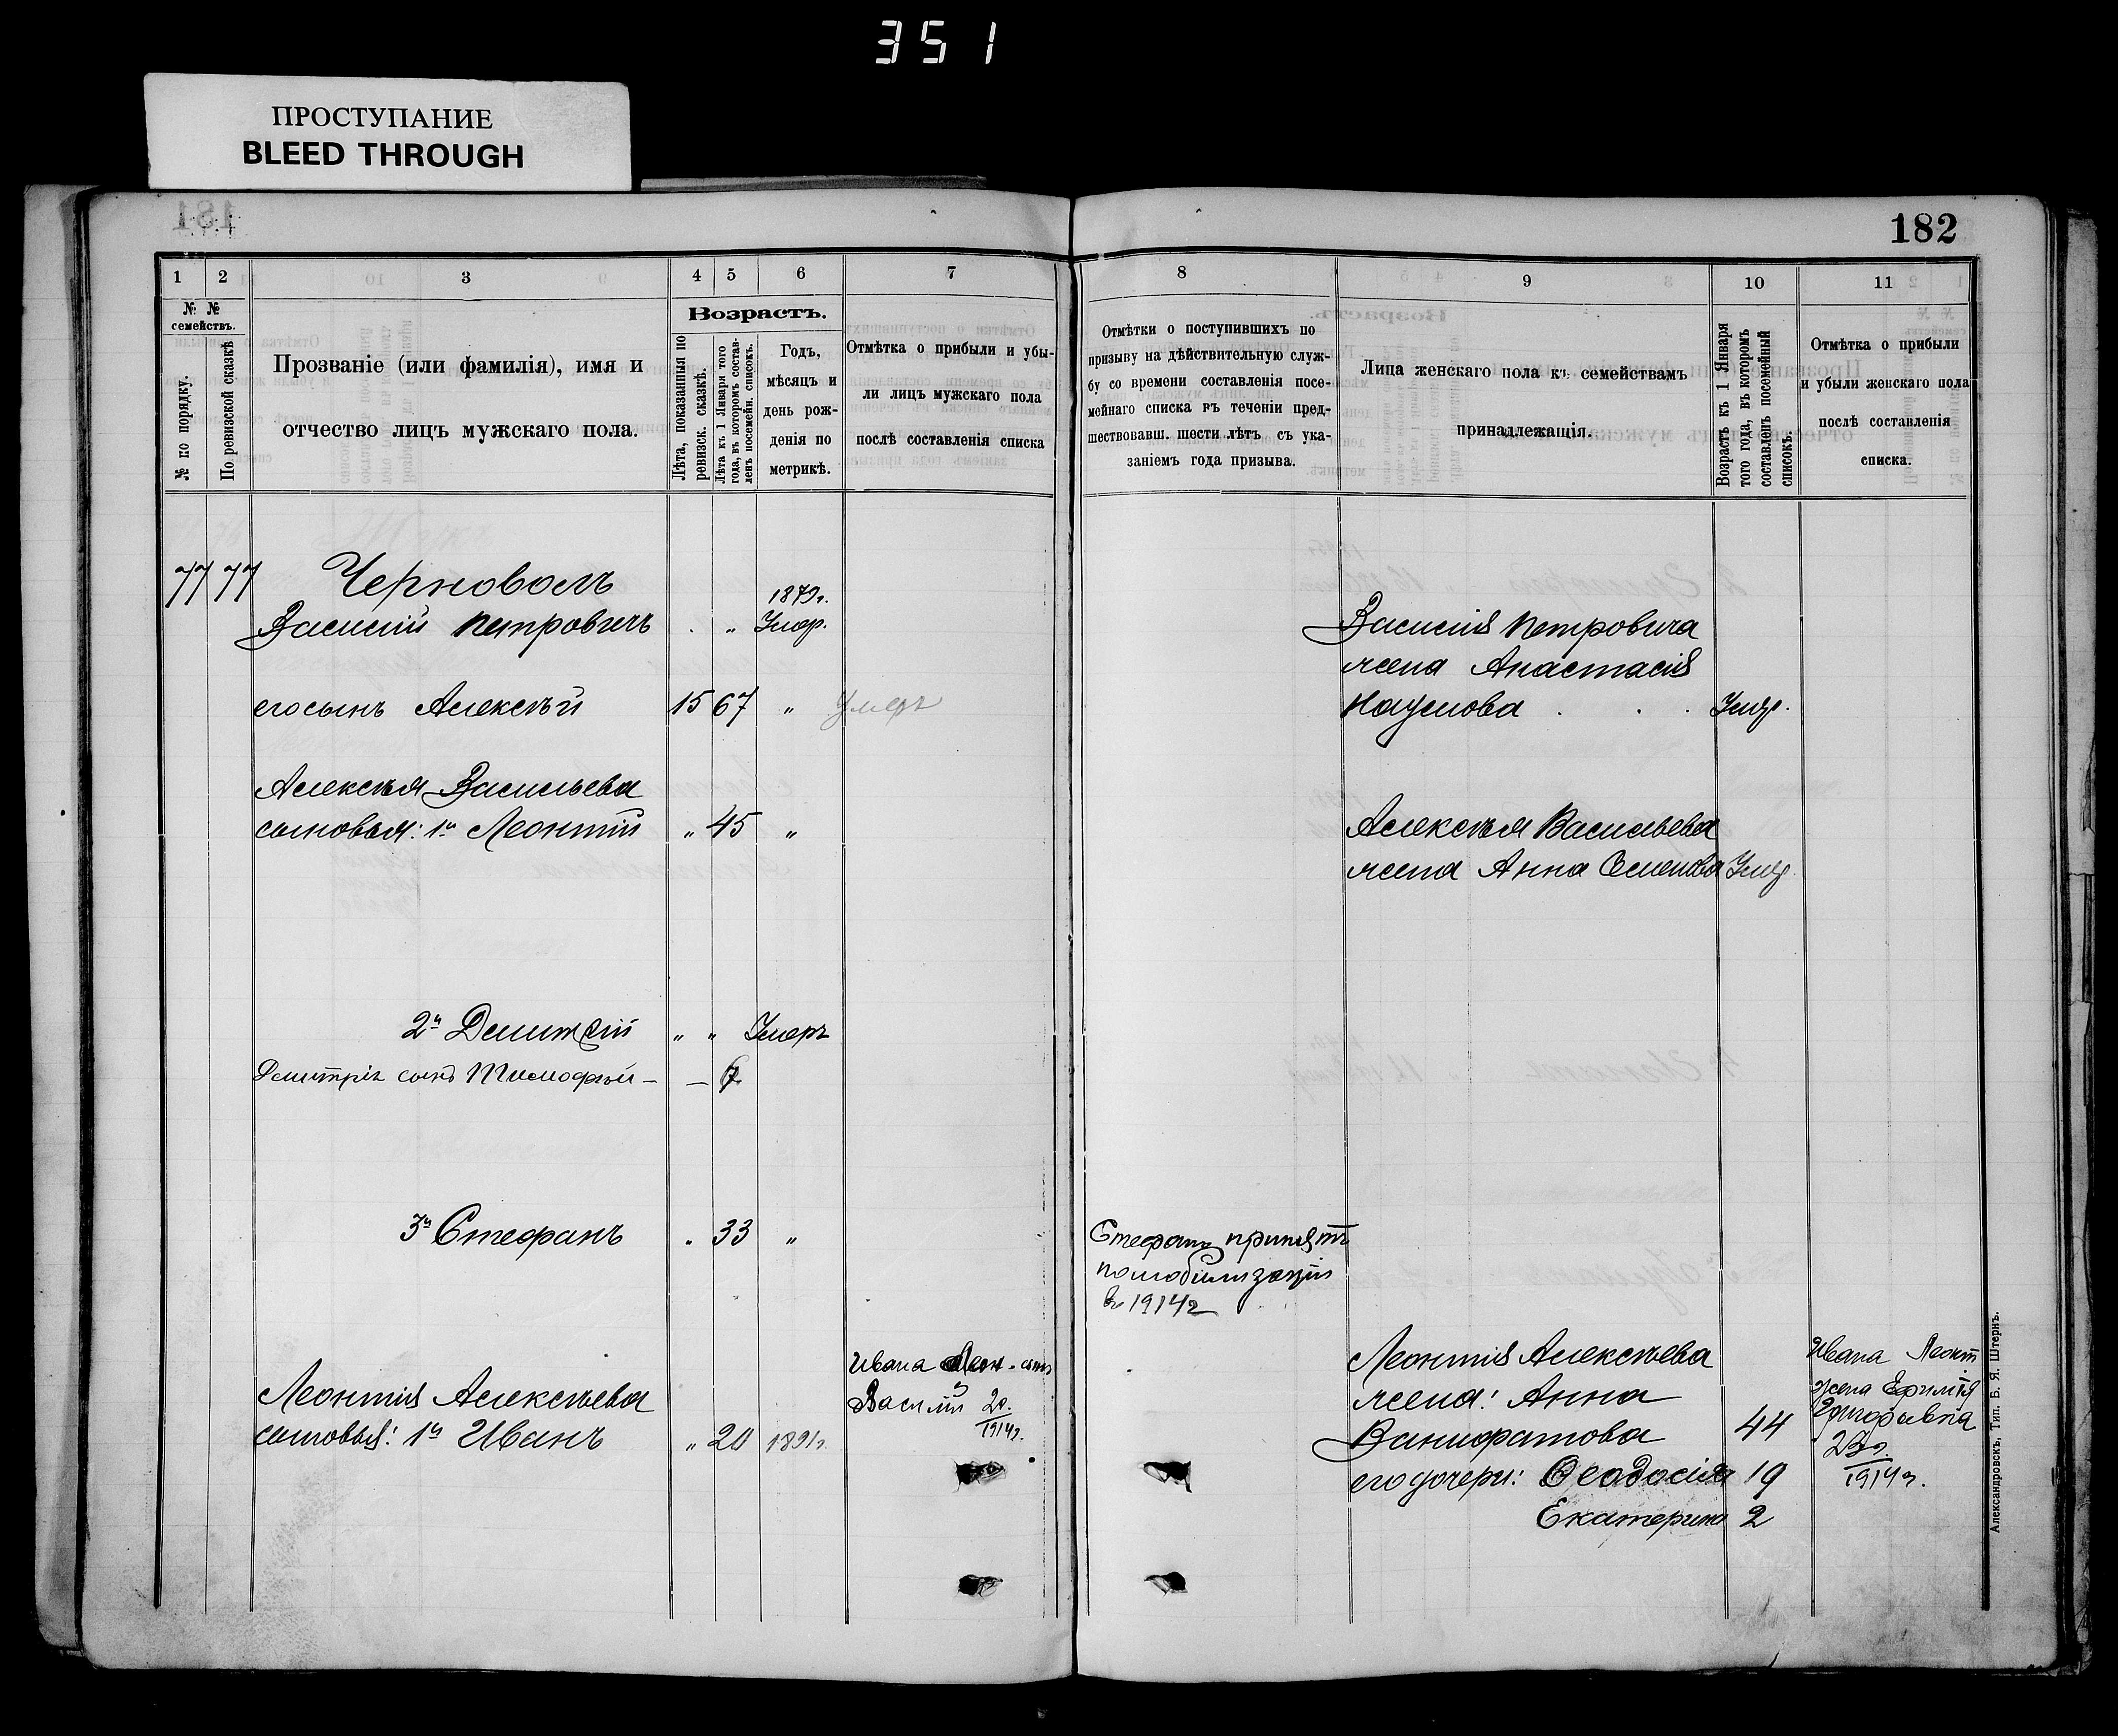 351
ПРОСТУПАНИЕ
BLEED THROUGH
181
182
1 2 3 4 5 6 7
№ № семействъ.
№ по порядку.
По ревизской сказкѣ
Прозваніе (или фамилія), имя и
отчество лицъ мужскаго пола.
Возрастъ.
Лѣта, показанныя по
ревизск. сказкѣ.
Лѣта къ 1 Января того
года, въ которомъ состав-
ленъ посемейн. списокъ.
Годъ,
мѣсяцъ и
день рож-
денія по
метрикѣ.
Отмѣтка о прибыли и убы-
ли лицъ мужскаго пола
послѣ составленія списка
77 77 Черноволъ
1879г.
Василій Петровичъ . „ Умер.
его сынъ Алексѣй 15 67 „ Умеръ
Алексѣя Васильева
сыновья: 1й Леонтій „ 45 „
2й Дмитрій „ „ Умеръ
Дмитрія сынъ Тимофѣй — — 7
3й Стефанъ „ 33 „
Ивана Леон. сынъ
Василій 2г.
1914г.
Леонтія Алексѣева
сыновья: 1й Иванъ „ 20 1891г.
8 9 10 11
Отмѣтки о поступившихъ по
призыву на дѣйствительную служ-
бу со времени составленія посе-
мейнаго списка въ теченіи пред-
шествовавш. шести лѣтъ съ ука-
заніемъ года призыва.
Лица женскаго пола къ семействамъ
принадлежащія.
Возрастъ къ 1 Января
того года, въ которомъ
составленъ посемейный
списокъ.
Отмѣтка о прибыли
и убыли женскаго пола
послѣ составленія
списка.
Василія Петровича
жена Анастасія
Наумова . . . Умер.
Алексѣя Васильева
жена Анна Семенова Умер.
Стефанъ принятъ
по мобилизаціи
въ 1914г
Леонтія Алексѣева
жена: Анна
Ванифатова 44
его дочери: Ѳеодосія 19
Екатерина 2
Ивана Леонт
жена Ефимія
Григорьевна
1914г.
Александровскъ, Тип. Б. Я. Штернъ.